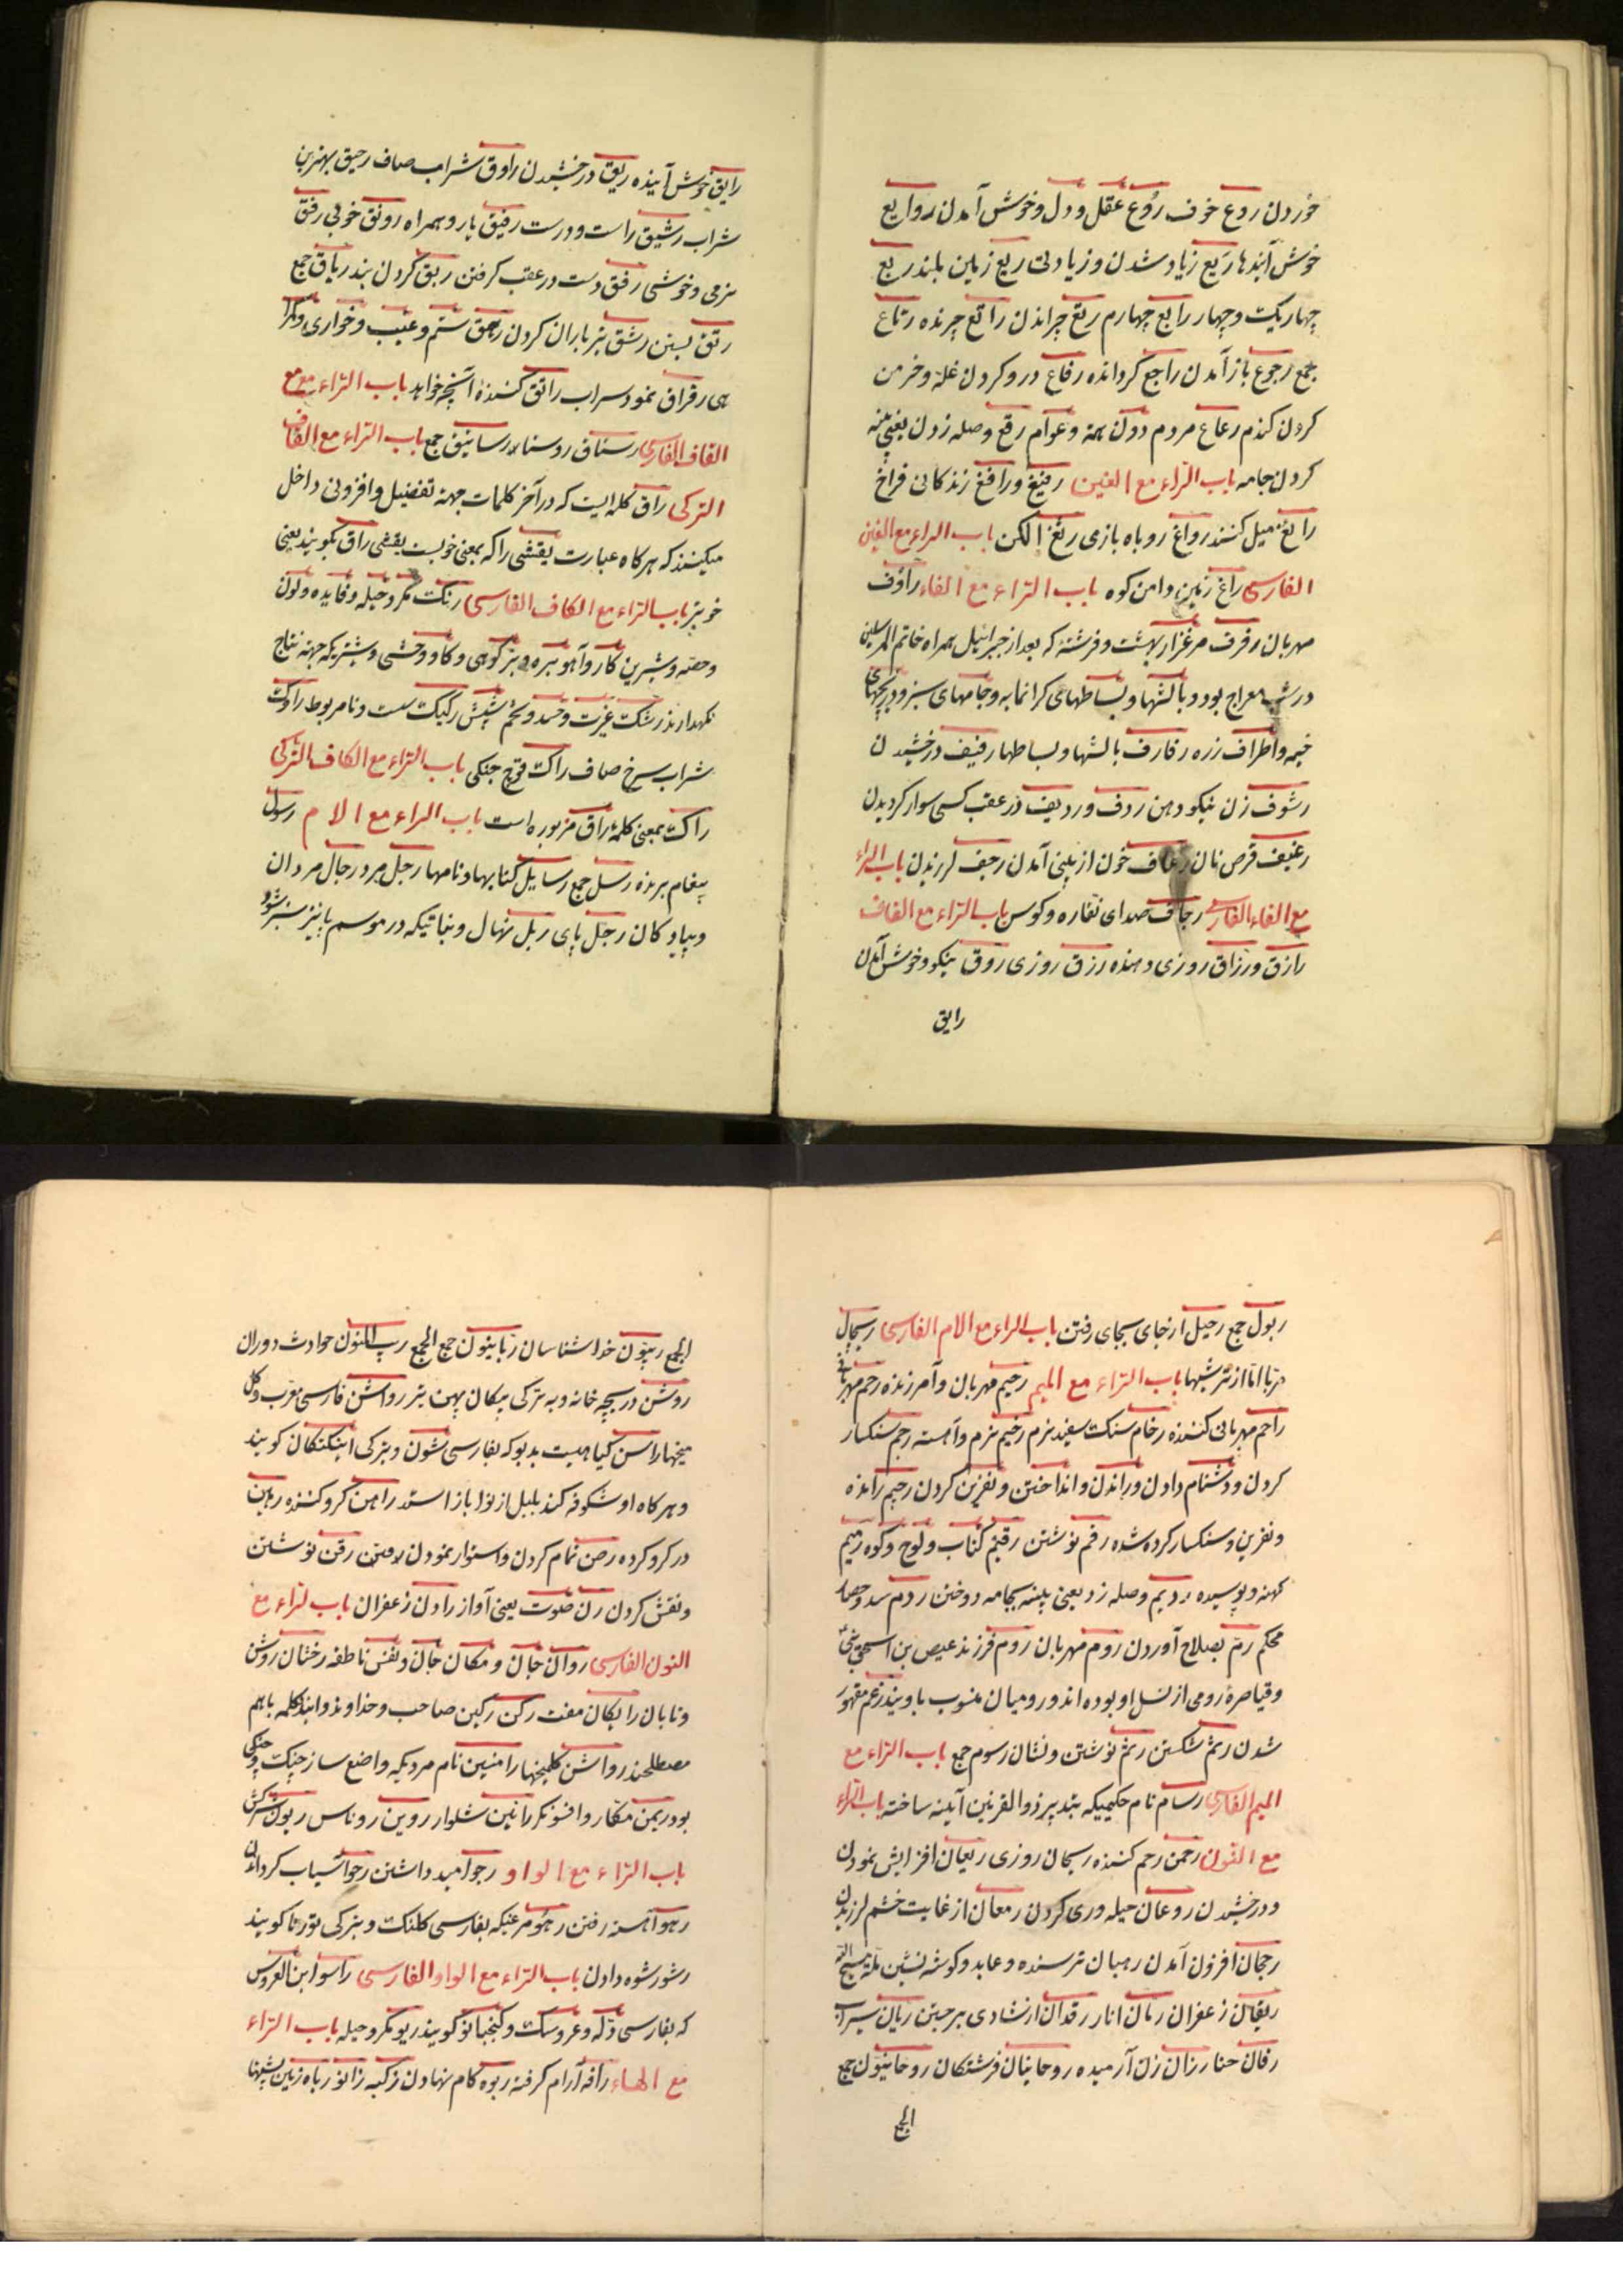 خوردن روع خوف رُوع عقل و دل و خوش آمدن روایع
خوش آیندها رَیع زیاد شدن و زیادتی ریع زمین بلند ربع
چهاریک و چهار رابع چهارم رتع چرانیدن راتع چرنده رتاع
جمع رجوع باز آمدن راجع گرداننده رفاع درو کردن غله و خرمن
کردن گندم رعاع مردم دون همة و عوام رقع وصله زدن یعنی پینه
کردن جامه باب الراء مع الغین رفیغ و رافغ زندکانی فراخ
رایغ میل کننده رواغ روباه بازی رثغ الکن باب الراء مع الغین
الفارسی راغ زمین دامن کوه باب الراء مع الفاء راؤف
مهربان رفرف مرغزار بهشت و فرشتهٔ که بعد از جبرائیل همراه خاتم المرسلین
در شب معراج بود و بالشها و بساطهای کرانمایه و جامهای سبز و دریچهای
خیمه و اطراف زره رفارف بالشها و بساطها رفیف درخشیدن
رشوف زن نیکو دهن ردف و ردیف در عقب کسی سوار کردیدن
رغیف قرص نان رعاف خون از بینی آمدن رجف لرزیدن باب الراء
مع الفاء الفارسی رجاف صدای نقاره و کوس باب الراء مع القاف
رازق و رزاق روزی دهنده رزق روزی روق نیکو و خوش آمدن
رایق
رایق خوش آینده ریق درخشیدن راوق شراب صاف رحیق بهترین
شراب رشیق راست و درست رفیق یار و همراه رونق خوبی رفق
نرمی و خوشی رفق دست در عقب کرفتن ربق کردن بند رباق جمع
رتق بستن رشق تیر باران کردن رهق ستم و عیب و خواری و
می رقراق نمود سراب راتق کننده آنچه خواهد باب الراء مع
القاف الفارسی رستاق روستا رساتیق جمع باب الراء مع القاف
الترکی راق کلمه ایست که در آخر کلمات جهة تفضیل و افزونی داخل
میکنند که هرکاه عبارت یقشی را که بمعنی خوبست یقشی راق بگویند یعنی
خوبتر باب الراء مع الکاف الفارسی رنگ مکر و حیله و فایده و لون
و حصه و شیرین کار و آهو بره و بز کوهی و کاو وحشی و شتریکه جهة نتاج
نکهدارند رشک غیرت و حسد و تخم شپش رکیک سست و نامربوط راوک
شراب سرخ صاف راک قوچ جنکی باب الراء مع الکاف الترکی
راک بمعنی کلمهٔ راق مزبوره است باب الراء مع اللام رسول
پیغام برنده رسل جمع رسایل کتابها و نامها رجل مرد رجال مردان
و پیادکان رجل پای ربل نهال و نباتیکه در موسم پاییز سبز شود
ربول جمع رحیل از جای بجای رفتن باب الراء مع اللام الفارسی ریچال
مربا اما از ترشیها باب الراء مع المیم رحیم مهربان و آمرزنده رحم مهربانی
راحم مهربانی کننده رخام سنک سفید نرم رخیم نرم و آهسته رجم سنکسار
کردن و دشنام دادن و راندن و انداختن و نفرین کردن رجیم رانده
و نفرین و سنکسار کرده شده رقم نوشتن رقیم کتاب و لوح و کوه رمیم
کهنه و پوسیده ردیم وصله زد یعنی پینه بجامه دوختن ردم سد و حصار
محکم رمّ بصلاح آوردن روم مهربان روم فرزند عیص بن اسحق نبی
و قیاصرهٔ رومی از نسل او بوده اند و رومیان منسوب باویند رغم مقهور
شدن رثم شکستن رشم نوشتن و نشان رسوم جمع باب الراء مع
المیم الفارسی رسام نام حکیمیکه بتدبیر ذوالقرنین آیینه ساخته باب الراء
مع النون رحمن رحم کننده ریحان روزی ریعان افزایش نمودن
و درخشیدن روغان حیله وری کردن رمعان از غایت خشم لرزیدن
رجحان افزون آمدن رهبان ترسنده و عابد و کوشه نشین ملة مسیح
ریقان زعفران رمان انار رقدان از شادی برجستن ریان سیراب
رقان حنا رزان زن آرمیده روحانیان فرشتکان روحانیون جمع
الجمع
الجمع ربیّون خدا شناسان ربانیون جمع الجمع ریب المنون حوادث دوران
روشن دریچه خانه و به ترکی پیکان پهن تیر رواشن فارسی معرب و کل
میخها راسن کیاهیست بدبو که بفارسی شون و بترکی اینکنکان کویند
و هرکاه او شکوفه کند بلبل از نوا باز استد راهن کرو کننده رهن
در کرو کرده رصن تمام کردن و استوار نمودن رقن نوشتن
و نقش کردن رن صوت یعنی آواز رادن زعفران باب الراء مع
النون الفارسی روان جان و مکان جان و نفس ناطقه رخشان روشن
و تابان رایکان مفت رکن رکین صاحب و خداوند و ایندو کلمه باهم
مصطلحند رواشن کلمیخها رامتین نام مردیکه واضع ساز چنک و چنکی
بود ریمن مکار و افسونکر رانین شلوار روین روناس ربون سرکش
باب الراء مع الواو رجو امید داشتن رحو آسیاب کرداندن
رهو آهسته رفتن رهو مرغیکه بفارسی کلنک و بترکی تورنا کویند
رشو رشوه دادن باب الراء مع الواو الفارسی راسو ابن العروس
که بفارسی دله و عروسک و کنجبانو کویند ریو مکر و حیله باب الراء
مع الهاء رافه آرام کرفته ربوه کام نهادن رکبه زانو رباه زمین پشتها